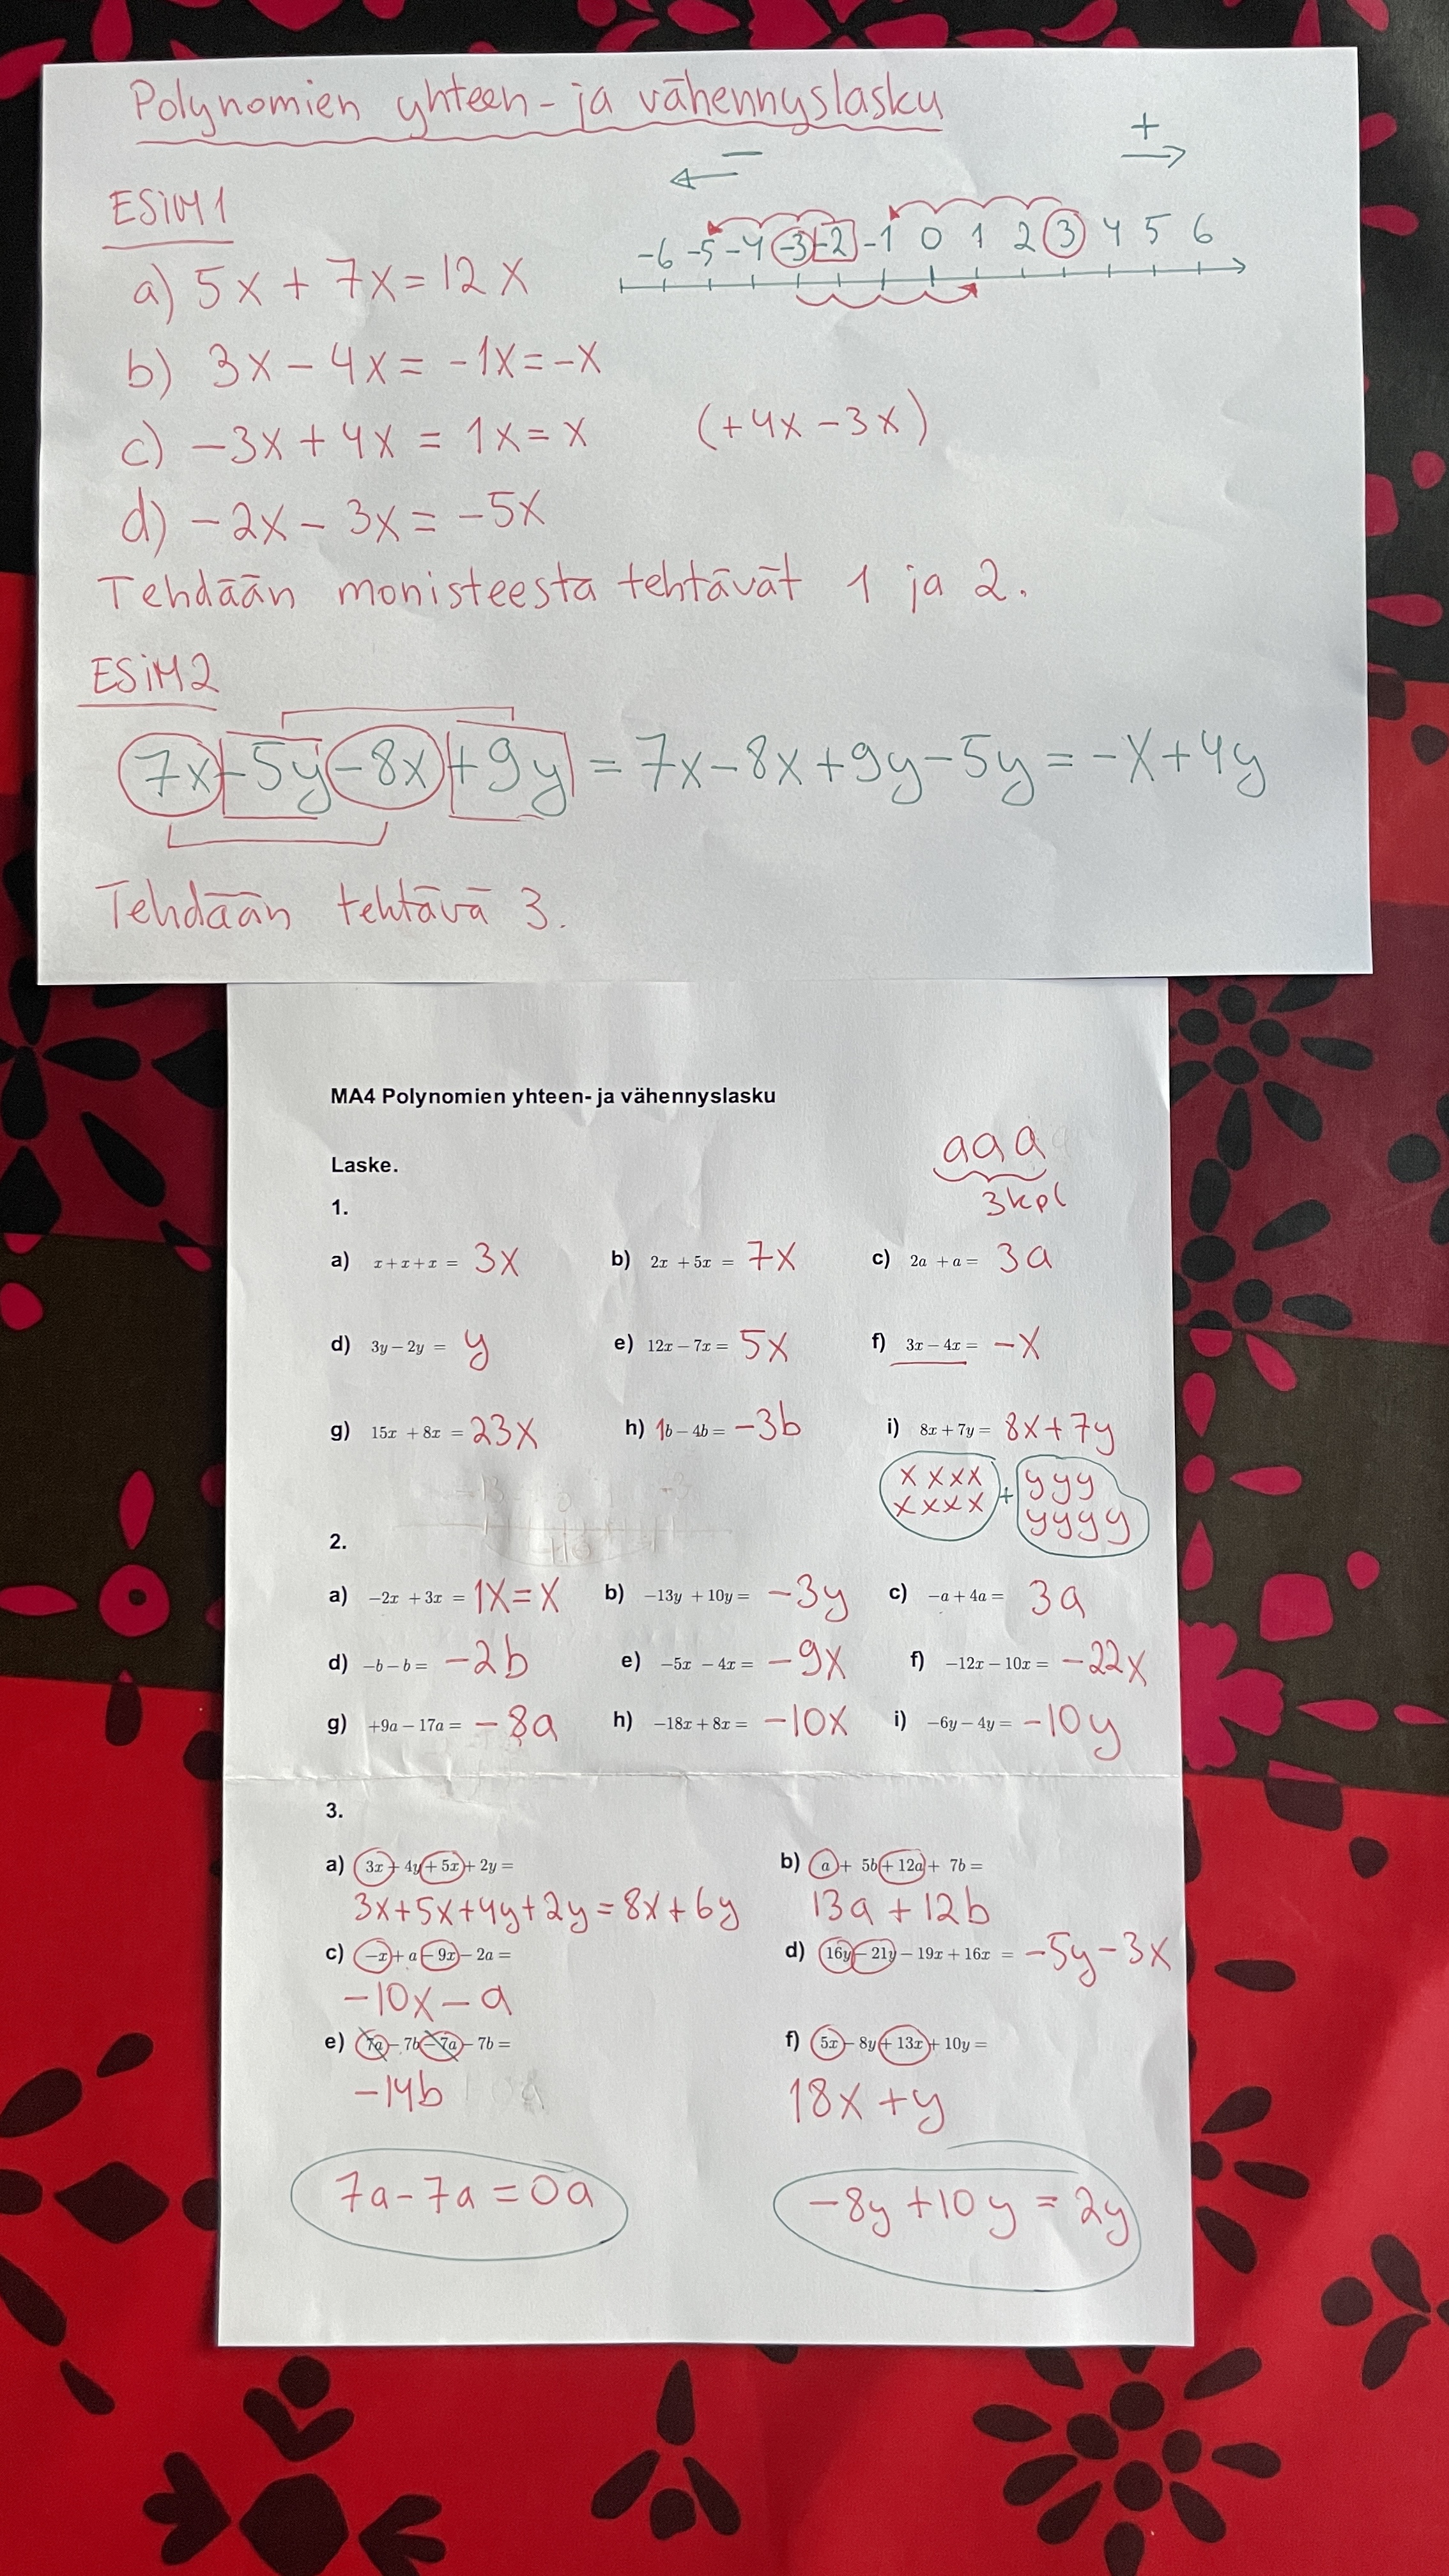 Polynomien yhteen- ja vähennyslasku
− +
ESIM1
-6 -5 -4 -3 -2 -1 0 1 2 3 4 5 6
a) 5x + 7x = 12x
b) 3x − 4x = −1x = −x
c) −3x + 4x = 1x = x (+4x − 3x)
d) −2x − 3x = −5x
Tehdään monisteesta tehtävät 1 ja 2.
ESIM2
7x −5y −8x +9y = 7x − 8x + 9y − 5y = −x + 4y
Tehdään tehtävä 3.
MA4 Polynomien yhteen- ja vähennyslasku
a a a
Laske.
3kpl
1.
a) x + x + x = 3x b) 2x + 5x = 7x c) 2a + a = 3a
d) 3y − 2y = y e) 12x − 7x = 5x f) 3x − 4x = −x
g) 15x + 8x = 23x h) 1b − 4b = −3b i) 8x + 7y = 8x + 7y
x x x x y y y
x x x x + y y y y
2.
a) −2x + 3x = 1x = x b) −13y + 10y = −3y c) −a + 4a = 3a
d) −b − b = −2b e) −5x − 4x = −9x f) −12x − 10x = −22x
g) +9a − 17a = −8a h) −18x + 8x = −10x i) −6y − 4y = −10y
3.
a) 3x + 4y + 5x + 2y = b) a + 5b + 12a + 7b =
3x + 5x + 4y + 2y = 8x + 6y 13a + 12b
c) −x + a − 9x − 2a = d) 16y − 21y − 19x + 16x = −5y − 3x
−10x − a
e) 7a − 7b − 7a − 7b = f) 5x − 8y + 13x + 10y =
−14b 18x + y
7a − 7a = 0a −8y + 10y = 2y